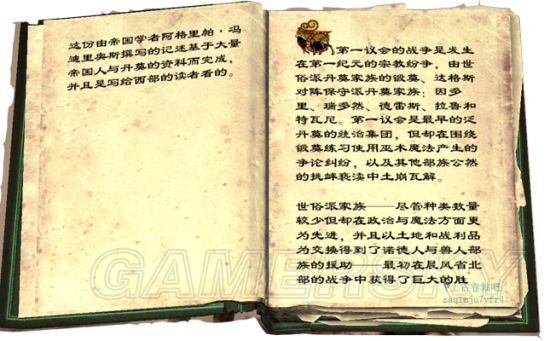 这份由帝国学者阿格里帕·冯
迪里奥斯撰写的记述基于大量
帝国人与丹莫的资料而完成，
并且是写给西部的读者看的。
第一议会的战争是发生
在第一纪元的宗教纷争，由世
俗派丹莫家族的锻莫、达格斯
对阵保守派丹莫家族：因多
里、瑞多然、德雷斯、拉鲁和
特瓦尼。第一议会是最早的泛
丹莫的统治集团，但却在围绕
锻莫练习使用巫术魔法产生的
争论纠纷，以及其他部族公然
的挑衅亵渎中土崩瓦解。
世俗派家族——尽管种类数量
较少但却在政治与魔法方面更
为先进，并且以土地和战利品
为交换得到了诺德人与兽人部
族的援助——最初在晨风省北
部的战争中获得了巨大的胜
GAMERSKY
上古卷轴吧